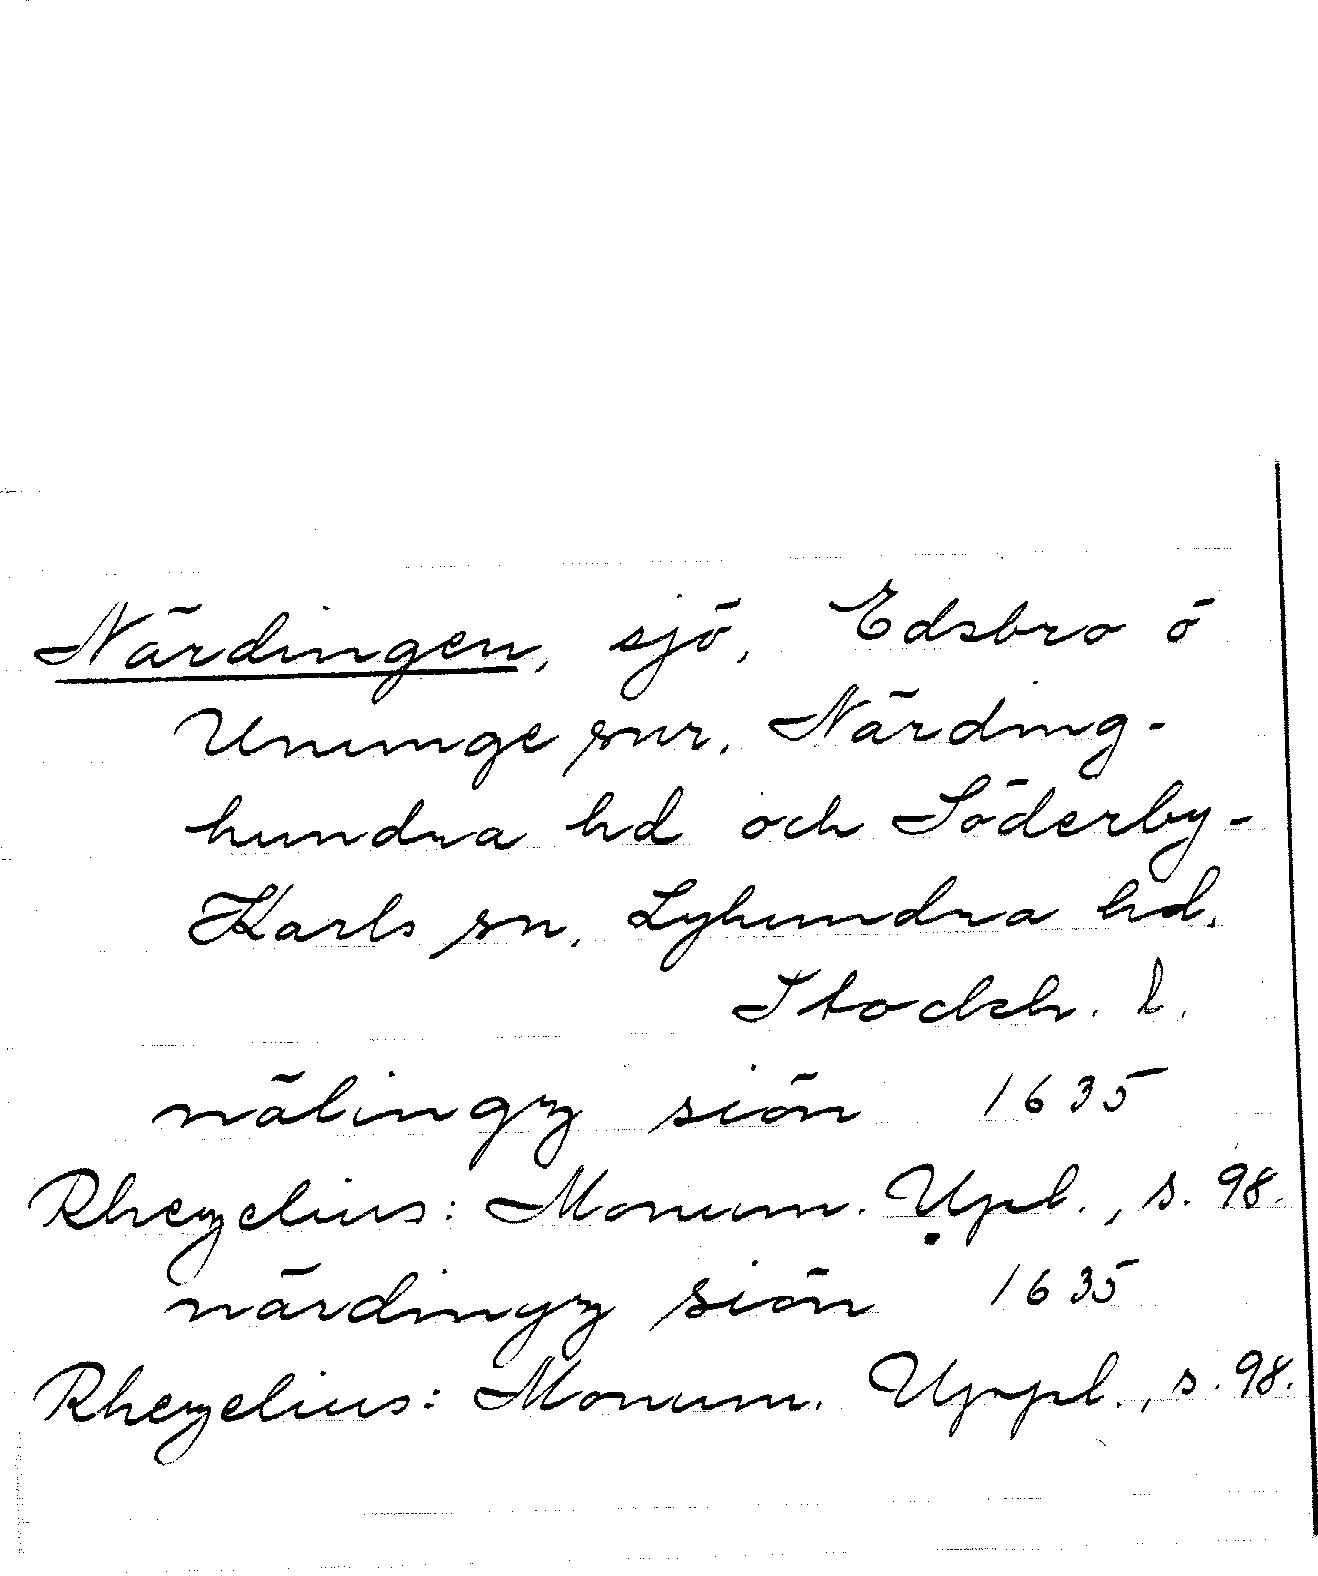 Närdingen, sjö, Edsbro o
Ununge snr, Närding-
hundra hd och Söderby-
Karls sn, Lyhundra hd,
Stockh. l.
nälingz siön 1635
Rhezelius: Monum. Upl., s. 98.
närdingz siön 1635
Rhezelius: Monum. Uppl., s. 98.